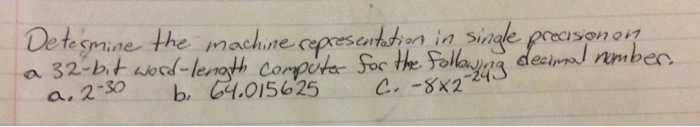 Determine the machine representation in single precision on
a 32-bit word-length computer for the following decimal number.
a. 2⁻³⁰ b. 64.015625 c. -8x2⁻²⁴